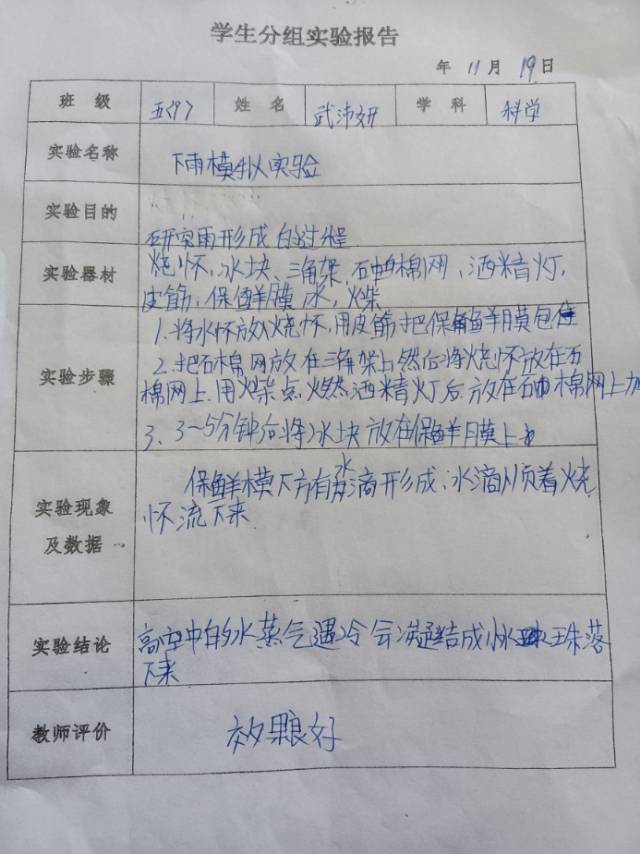 学生分组实验报告
年 11月 19日
班 级 五<9> 姓 名 武沛妍 学 科 科学
实验名称 下雨模拟实验
实验目的 研究雨形成的过程
实验器材 烧怀,冰块、三角架,石的棉网、洒精灯,
皮筋,保鲜膜,水,火柴
实验步骤
1.将水怀放入烧怀,用皮筋把保鲜膜包住
2.把石棉网放在三角架上然后将烧怀放在石
棉网上.用火柴点燃洒精灯后放在石棉网上加
3、3~5分钟后将冰块放在保鲜膜上
实验现象
及数据
保鲜模下方有水滴形成、水滴顺着烧
怀流下来
实验结论 高空中的水蒸气遇冷会凝结成小水珠落
下来
教师评价 效果良好